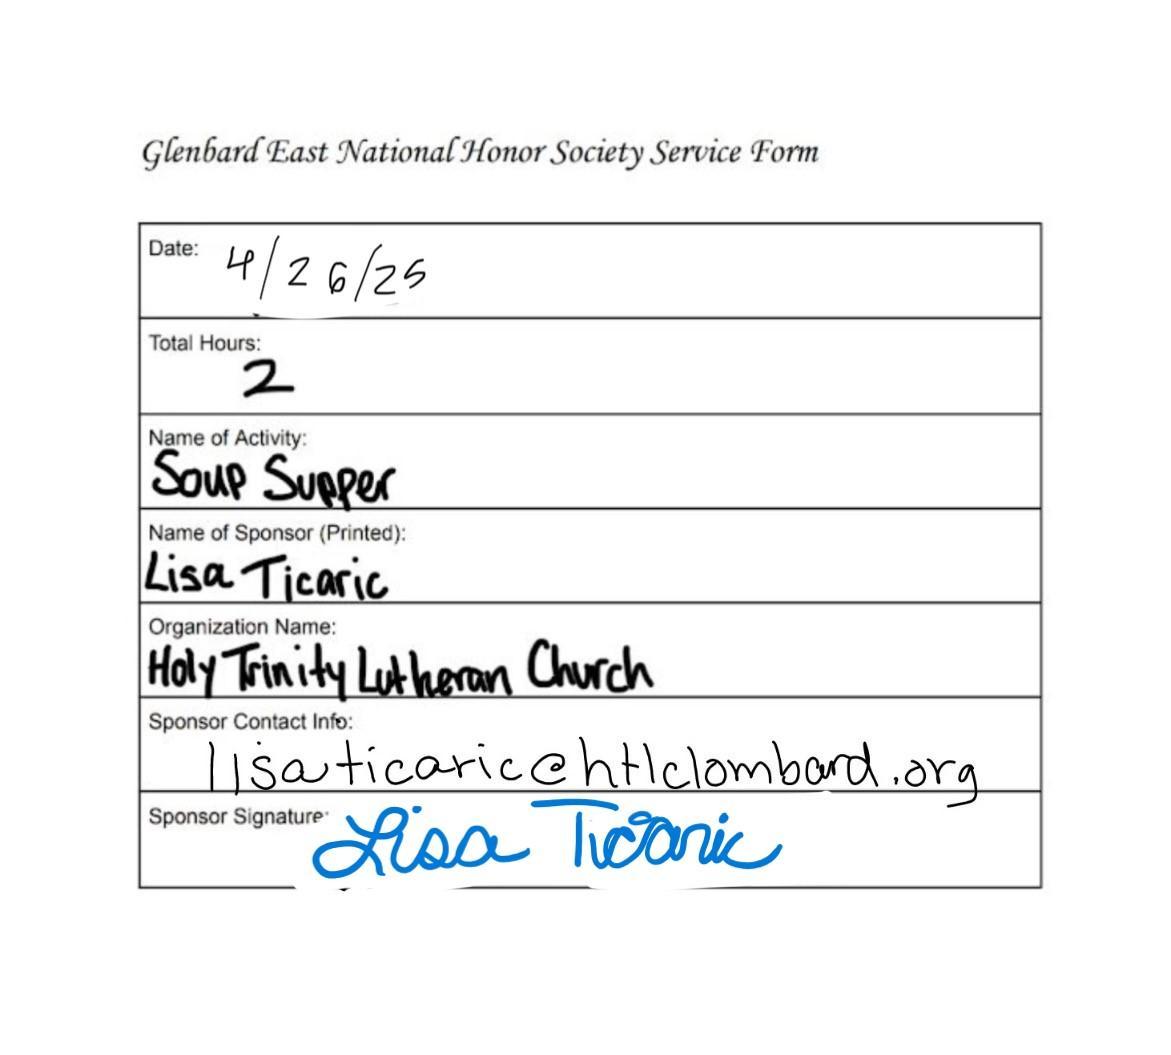 Glenbard East National Honor Society Service Form
Date: 4/26/25
Total Hours:
2
Name of Activity:
Soup Supper
Name of Sponsor (Printed):
Lisa Ticaric
Organization Name:
Holy Trinity Lutheran Church
Sponsor Contact Info:
lisaticaric@htlclombard.org
Sponsor Signature: Lisa Ticaric